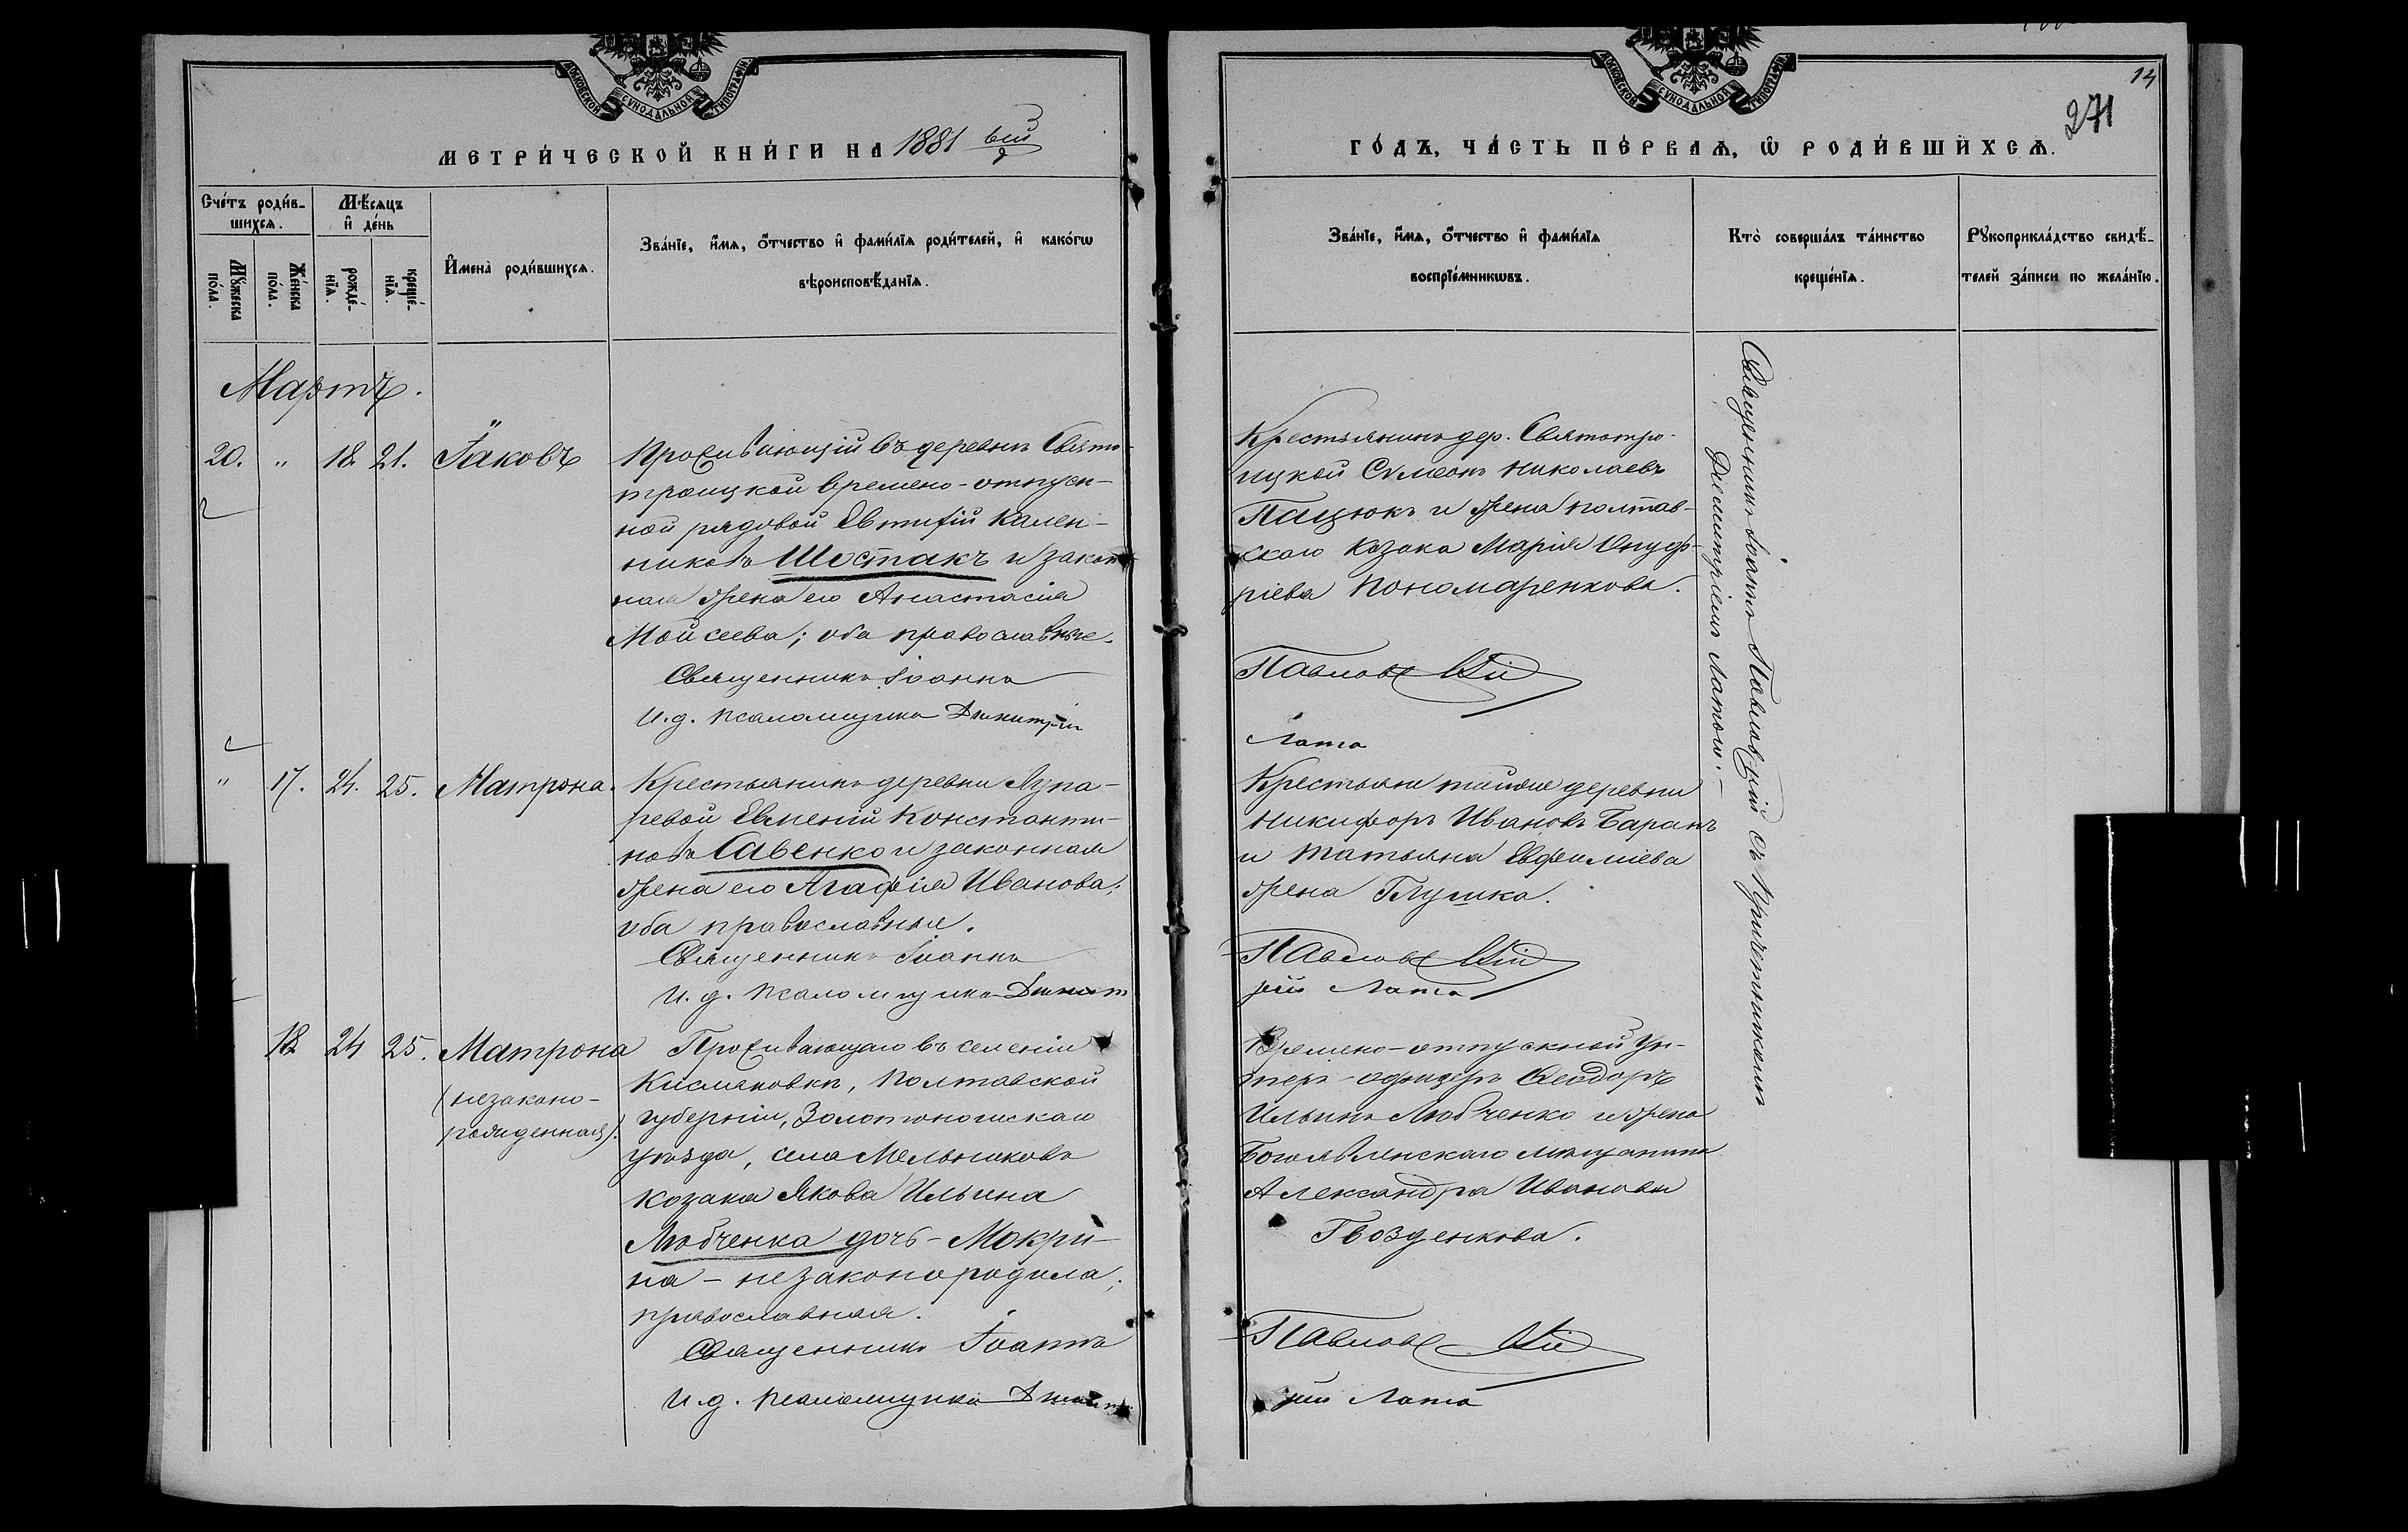 МОСКОВСКОЙ СѴНОДАЛЬНОЙ ТИПОГРАФІИ
МЕТРИ́ЧЕСКОЙ КНИ́ГИ НА 1881 вый
Сче́тъ роди́в-
шихсѧ.
Мѣ́сѧцъ
и҆ де́нь
Мꙋ́жеска
по́ла.
Же́нска
по́ла.
рожде́-
нїѧ.
креще́-
нїѧ.
И҆мена̀ роди́вшихсѧ.
Зва́нїе, и҆́мѧ, ѻ҆́тчество и҆ фами́лїѧ роди́телей, и҆ како́гѡ
вѣроисповѣ́данїѧ.
Мартъ.
20. " 18. 21. Іаковъ
Проживающій въ деревнѣ Свято-
троицкой времено-отпуск-
ной рядовой Евтифій Кален-
никовъ Шостакъ и закон
ная жена его Анастасія
Мойсеева; оба православные.
Священникъ Іоаннъ
И. д. псаломщика Димитрій
" 17. 24. 25. Матрона.
Крестьянинъ деревни Лупа-
ревой Евменій Константи-
новъ Савенко и законная
жена его Агафія Иванова;
оба православные.
Священникъ Іоаннъ
И. д. псаломщика Димит
18. 24 25. Матрона
(незаконо-
рожденная).
Проживающаго въ селеніи
Кисляковкѣ, Полтавской
губерніи, Золотоношскаго
уѣзда, села Мельниковъ
козака Якова Ильина
Любченка дочь - Мокри-
на - незаконородила;
православная.
Священникъ Іоаннъ
И. д. псаломщика Димит
МОСКОВСКОЙ СѴНОДАЛЬНОЙ ТИПОГРАФІИ
14
271
ГО́ДЪ, ЧА́СТЬ ПЕ́РВАѦ, Ѡ҆ РОДИ́ВШИХСѦ.
Зва́нїе, и҆́мѧ, ѻ҆́тчество и҆ фами́лїѧ
воспрїе́мникѡвъ.
Кто̀ соверша́лъ та́инство
креще́нїѧ.
Рꙋкоприкла́дство свидѣ́-
телей за́писи по жела́нїю.
Крестьянинъ дер. Святотро-
ицкой Сѵмеонъ Николаевъ
Пацюкъ и жена полтав-
скаго козака Марія Онуф-
ріева Пономаренкова.
Павловскій
Лата
Крестьяне тойже деревни
Никифоръ Ивановъ Баранъ
и Татьяна Евфиміева
жена Глушка.
Павловскій
рій Лата
Времено-отпускной ун-
теръ-офицеръ Ѳеодоръ
Ильинъ Любченко и жена
Богоявленскаго мѣщанина
Александра Иванова
Гвозденкова.
Павловскій
рій Лата
Священникъ Іоаннъ Павловскій съ причетникомъ
Димитріемъ Латою.-